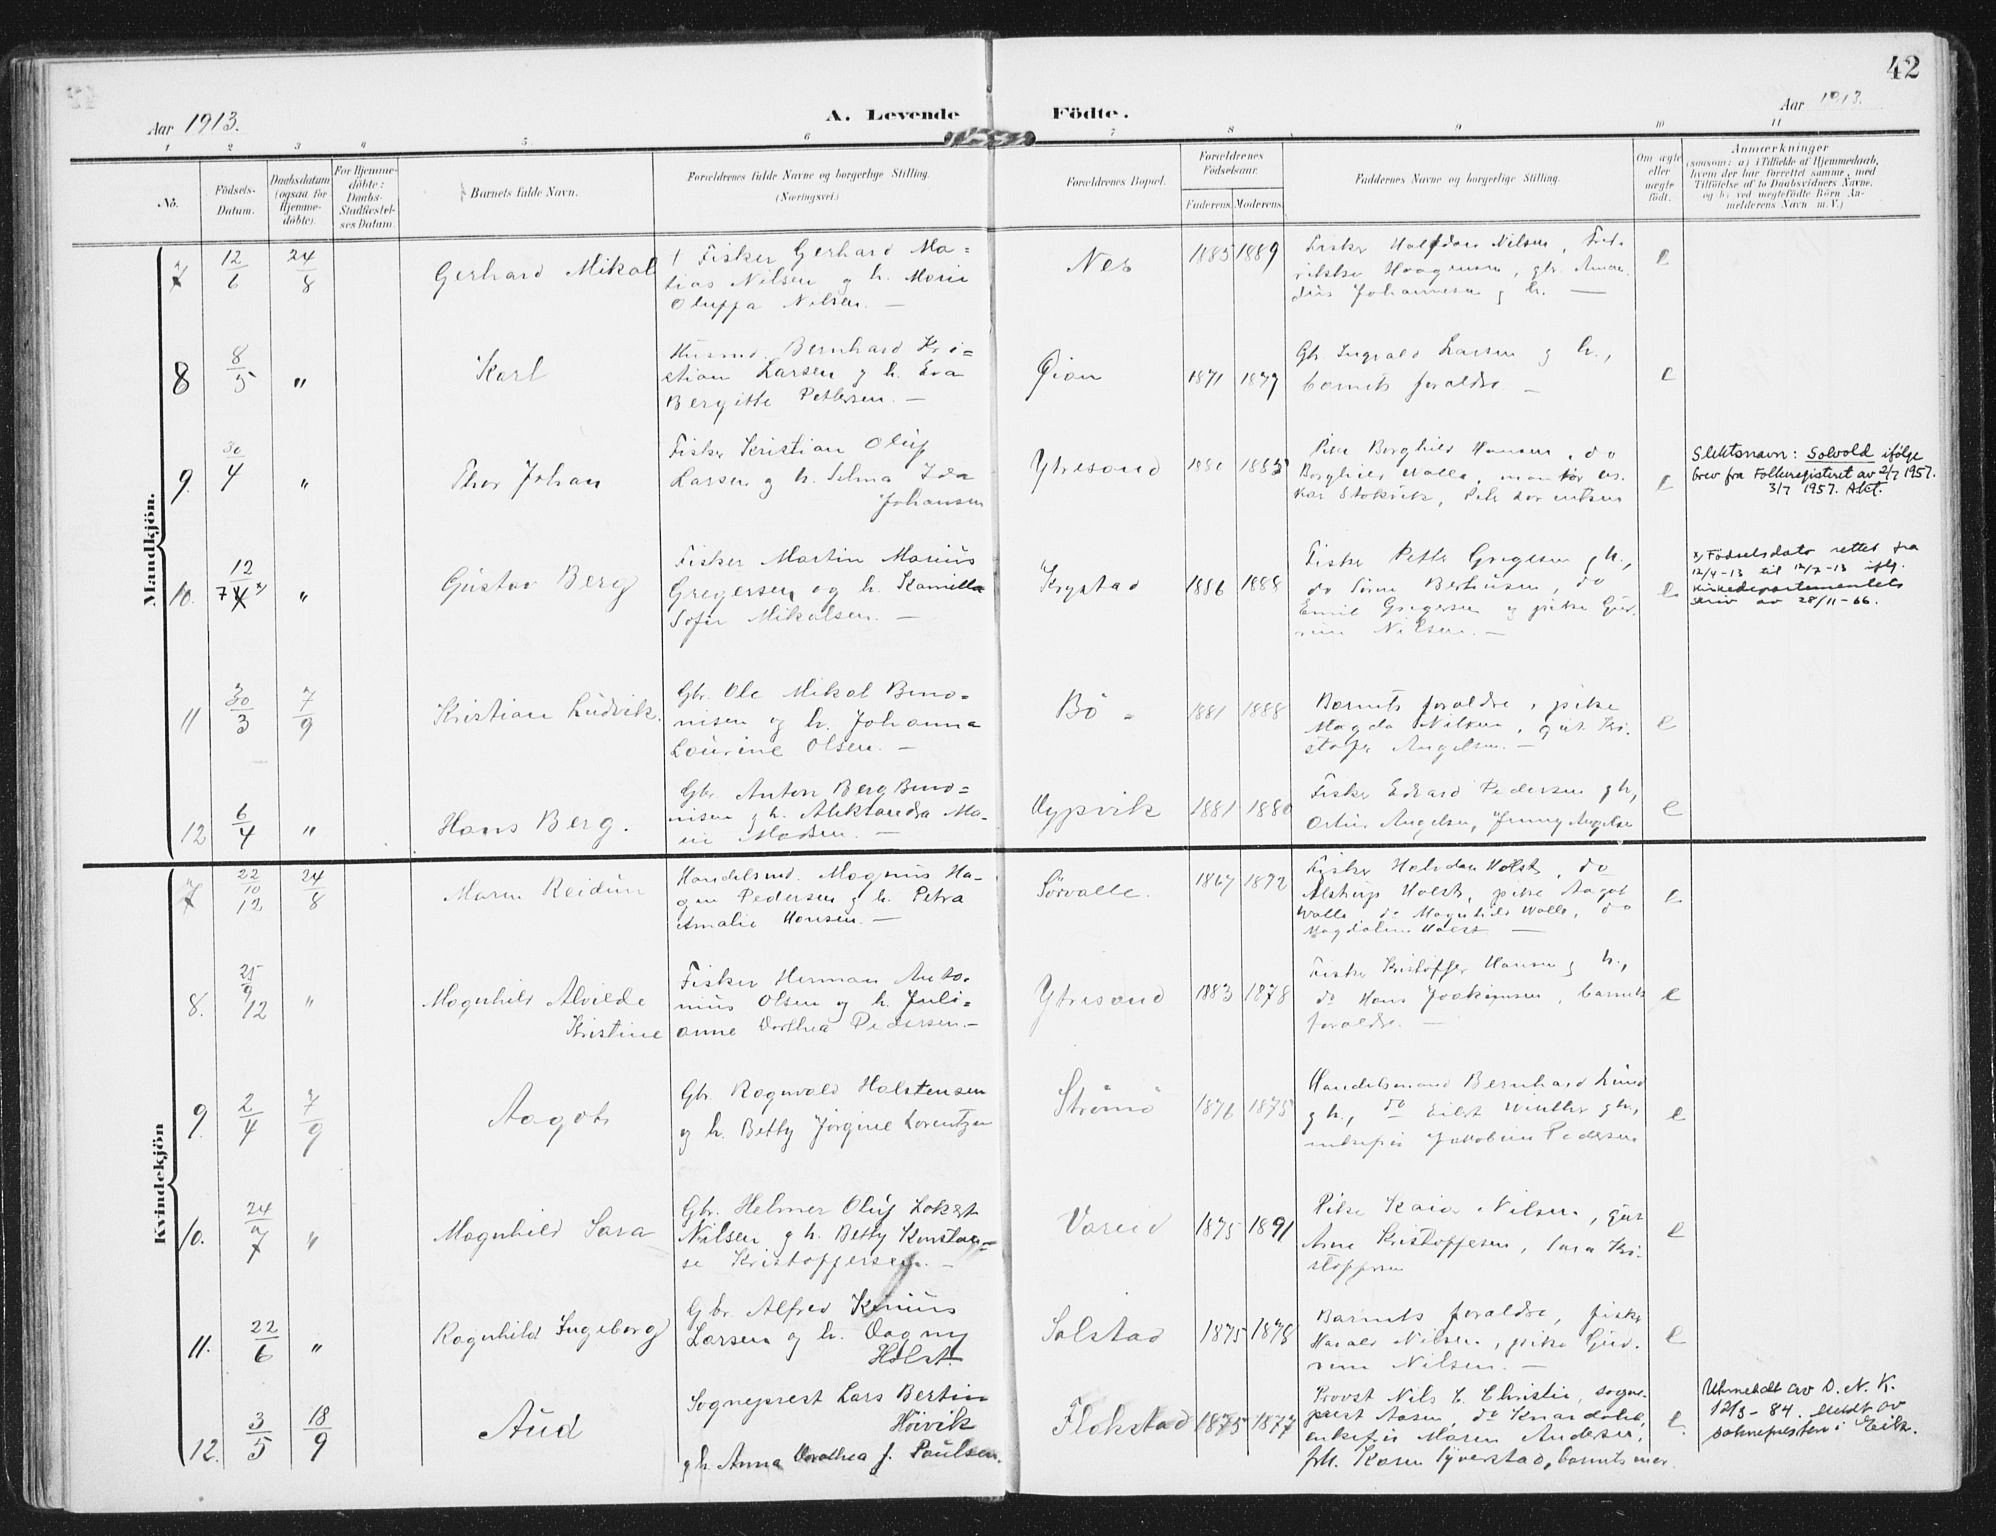 42
Aar 1913.
A. Levende Födte.
Aar 1913.
1 2 3 4 5 6 7 8 9 10 11
No.
Födsels-
Datum.
Daabsdatum
(ogsaa for
Hjemme-
döbte).
For Hjemme-
döbte:
Daabs-
Stadfestel-
ses Datum
Barnets fulde Navn.
Forældrenes fulde Navne og borgerlige Stilling.
(Næringsvei.)
Forældrenes Bopæl.
Forældrenes
Födselsaar.
Faderens. Moderens.
Faddernes Navne og borgerlige Stilling.
Om ægte
eller
uægte
født.
Anmærkninger
(saasom: a) i Tilfælde af Hjemmedaab,
hvem der har forrettet samme, med
Tilföielse af to Daabsvidners Navne,
og b) ved uegtefödte Börn An-
melderens Navn m. V.)
Mandkjön.
7 12/6 24/8 Gerhard Mikal
Fisker Gerhard Ma=
tias Nilsen og h. Marie
Oluffa Nilsen. —
Nes 1885 1889
Fisker Halfdan Nilsen, Fred-
rikke Haagensen, gbr. Aman-
dus Johannesen g h. — e
8 8/5 " Karl
Husmd. Bernhard Kri=
stian Larsen g h. Eva
Bergitte Pettersen. —
1871 1877
Gb. Ingvald Larsen g h.,
barnets foraldre — e
9. 30/4 " Thor Johan
Fisker Kristian Oluf
Larsen og h. Selma Ida
Johansen
Ytresand 1880 1885
Pike Borghild Hansen, do
Borghild Walle, e
Slektsnavn: Solvold ifølge
brev fra Folkeregisteret av 2/7 1957.
3/7 1957.
10. 12/7 4 x) " Gustav Berg
Fisker Martin Marius
Gregersen og h. Kamilla
Sofie Mikalsen. —
Krystad 1886 1888
Fisker Petter Gregersen g h.,
do Sören Berthusen, do
Emil Gregersen og pike Gud-
run Nilsen. — e
x) Födselsdato rettet fra
12/4-13 til 12/7-13 iflg.
Kirkedepartementets
skriv av 28/11-66.
11 30/3 7/9 Kristian Ludvik.
Gbr. Ole Mikal Beno=
nisen og h. Johanna
Laurine Olsen. —
Bö 1881 1888
Barnets foraldre, pike
Magda Nilsen, gut Kri-
stofer Angelsen. — e
12 6/4 " Hans Berg.
Gbr. Anton Berg Beno=
nisen g h. Aleksandra Ma-
rie Madsen. —
1881 1880
Fisker Edvard Pedersen g h,
Artur Angelsen, Jenny Angelsen e
Kvindekjön
7 22/10 12 24/8 Maren Reidun
Handelsmd. Magnus Ha-
gen Pedersen g h. Petra
Amalie Hansen. —
Sörvalle. 1867 1872
Fisker Halvdan Holst, do
Holst, pike Aagot
Walle, do Magnhild Walle, do
Magdalene Holst — e
8. 25/9 12 " Magnhild Alvilde
Kristine
Fisker Herman Anto-
nius Olsen og h. Juli=
anne Dorthea Pedersen.—
Ytresand 1883 1878
Fisker Kristoffer Hansen g h.,
do Hans Joakimsen, barnets
foraldre. — e
9. 2/4 7/9 Aagot
Gbr. Ragnvald Halstensen
og h. Betty Jörgine Lorentzen
Strömö 1876 1875
Handelsmand Bernhard Lund
g h., do Eilert Winther g h,
enkefru Jakobine Pedersen e
10. 24/7 " Magnhild Sara
Gbr. Helmer Oluf Lokert
Nilsen g h. Betty Konstan=
se Kristoffersen. —
Vareid 1875 1891
Pike Kaia Nilsen, gut
Arne Kristoffersen, Sara Kri-
stoffersen e
11. 22/6 " Ragnhild Ingeborg
Gbr Alfred Kinius
Larsen og h. Dagny
Holst.
Solstad 1875 1878
Barnets foraldre, fisker
Harald Nilsen, pike Gud-
run Nilsen. — e
12. 3/5 18/9 Aud
Sogneprest Lars Bertin
Höivik
g h. Anna Dorothea f. Paulsen.
Flakstad 1875 1877
Provst Nils C. Christie, sogne-
prest Aasen, do
enkefru Maren Andersen,
frk. Karen Tyverstad, barnets mor. e
Utmeldt av D. N. K.
12/3-84. Meldt av
soknepresten i Eik.